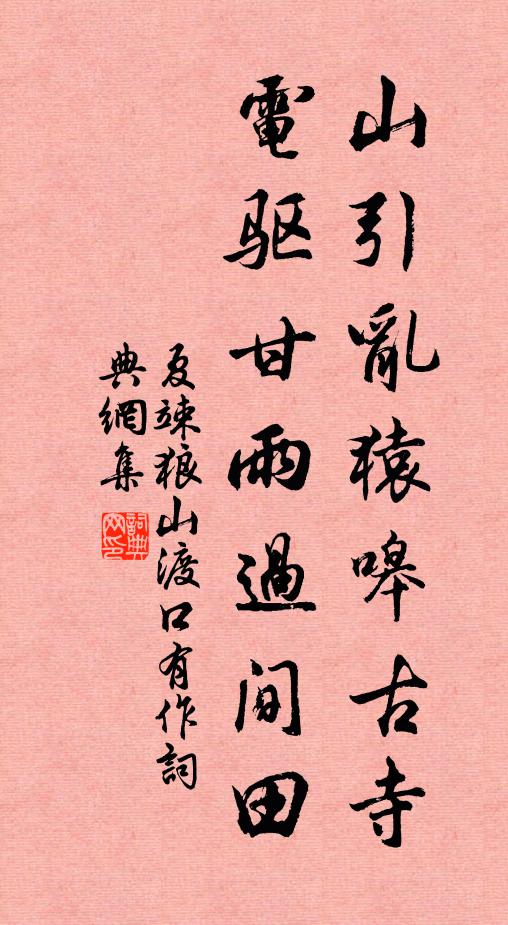 山引亂猿嗥古寺
電驱甘雨過间田
夏竦狼山渡口有作詞
典網集
詞典网印